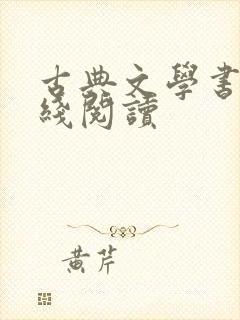 古典文學書
綫閱讀
黄芹